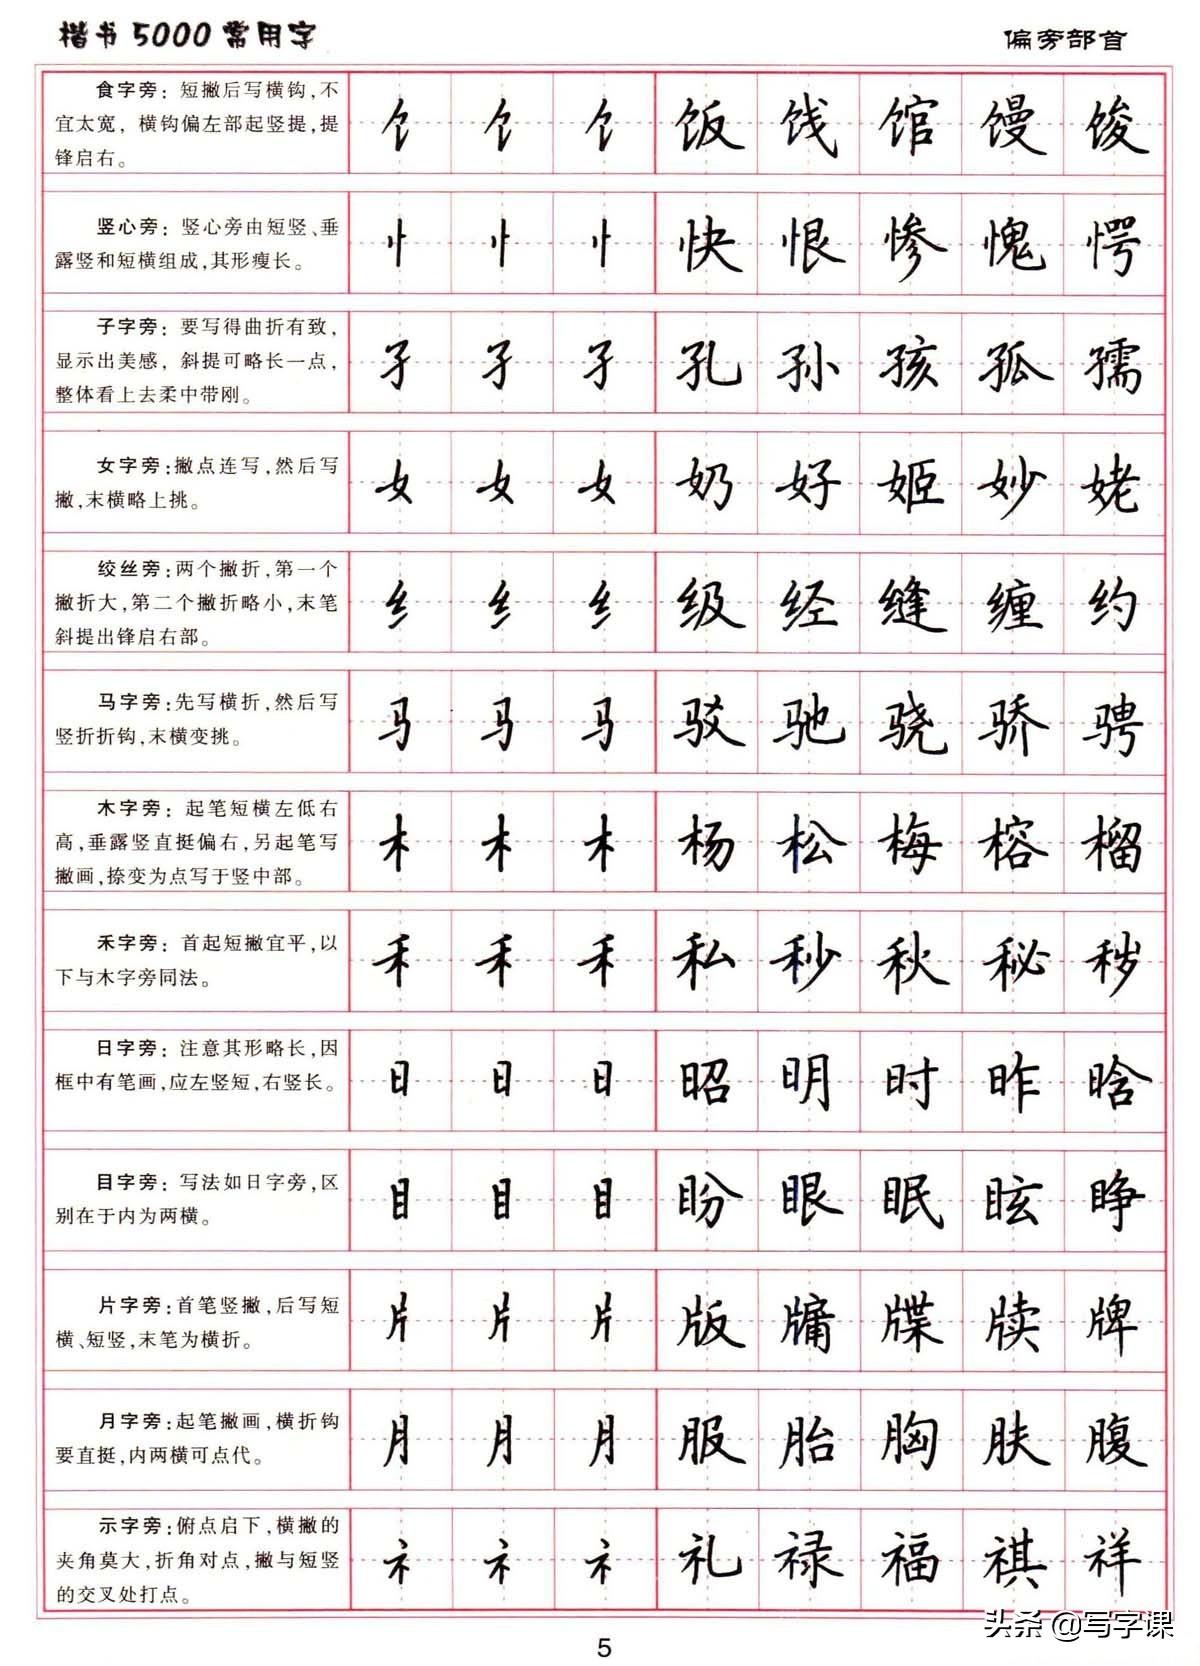 楷书5000常用字
偏旁部首
食字旁：短撇后写横钩，不
宜太宽，横钩偏左部起竖提，提
锋启右。
饣 饣 饣 饭 饯 馆 馒 馂
竖心旁：竖心旁由短竖、垂
露竖和短横组成，其形瘦长。
忄 忄 忄 快 恨 惨 愧 愕
子字旁：要写得曲折有致，
显示出美感，斜提可略长一点，
整体看上去柔中带刚。
孑 孑 孑 孔 孙 孩 孤 孺
女字旁：撇点连写，然后写
撇，末横略上挑。
女 女 女 奶 好 姬 妙 姥
绞丝旁：两个撇折，第一个
撇折大，第二个撇折略小，末笔
斜提出锋启右部。
纟 纟 纟 级 经 缝 缠 约
马字旁：先写横折，然后写
竖折折钩，末横变挑。
马 马 马 驳 驰 骁 骄 骋
木字旁：起笔短横左低右
高，垂露竖直挺偏右，另起笔写
撇画，捺变为点写于竖中部。
木 木 木 杨 松 梅 榕 榴
禾字旁：首起短撇宜平，以
下与木字旁同法。
禾 禾 禾 私 秒 秋 秘 秽
日字旁：注意其形略长，因
框中有笔画，应左竖短，右竖长。
日 日 日 昭 明 时 昨 晗
目字旁：写法如日字旁，区
别在于内为两横。
目 目 目 盼 眼 眠 眩 睁
片字旁：首笔竖撇，后写短
横、短竖，末笔为横折。
片 片 片 版 牗 牒 牍 牌
月字旁：起笔撇画，横折钩
要直挺，内两横可点代。
月 月 月 服 胎 胸 肤 腹
示字旁：俯点启下，横撇的
夹角莫大，折角对点，撇与短竖
的交叉处打点。
礻 礻 礻 礼 禄 福 祺 祥
头条 @写字课
5